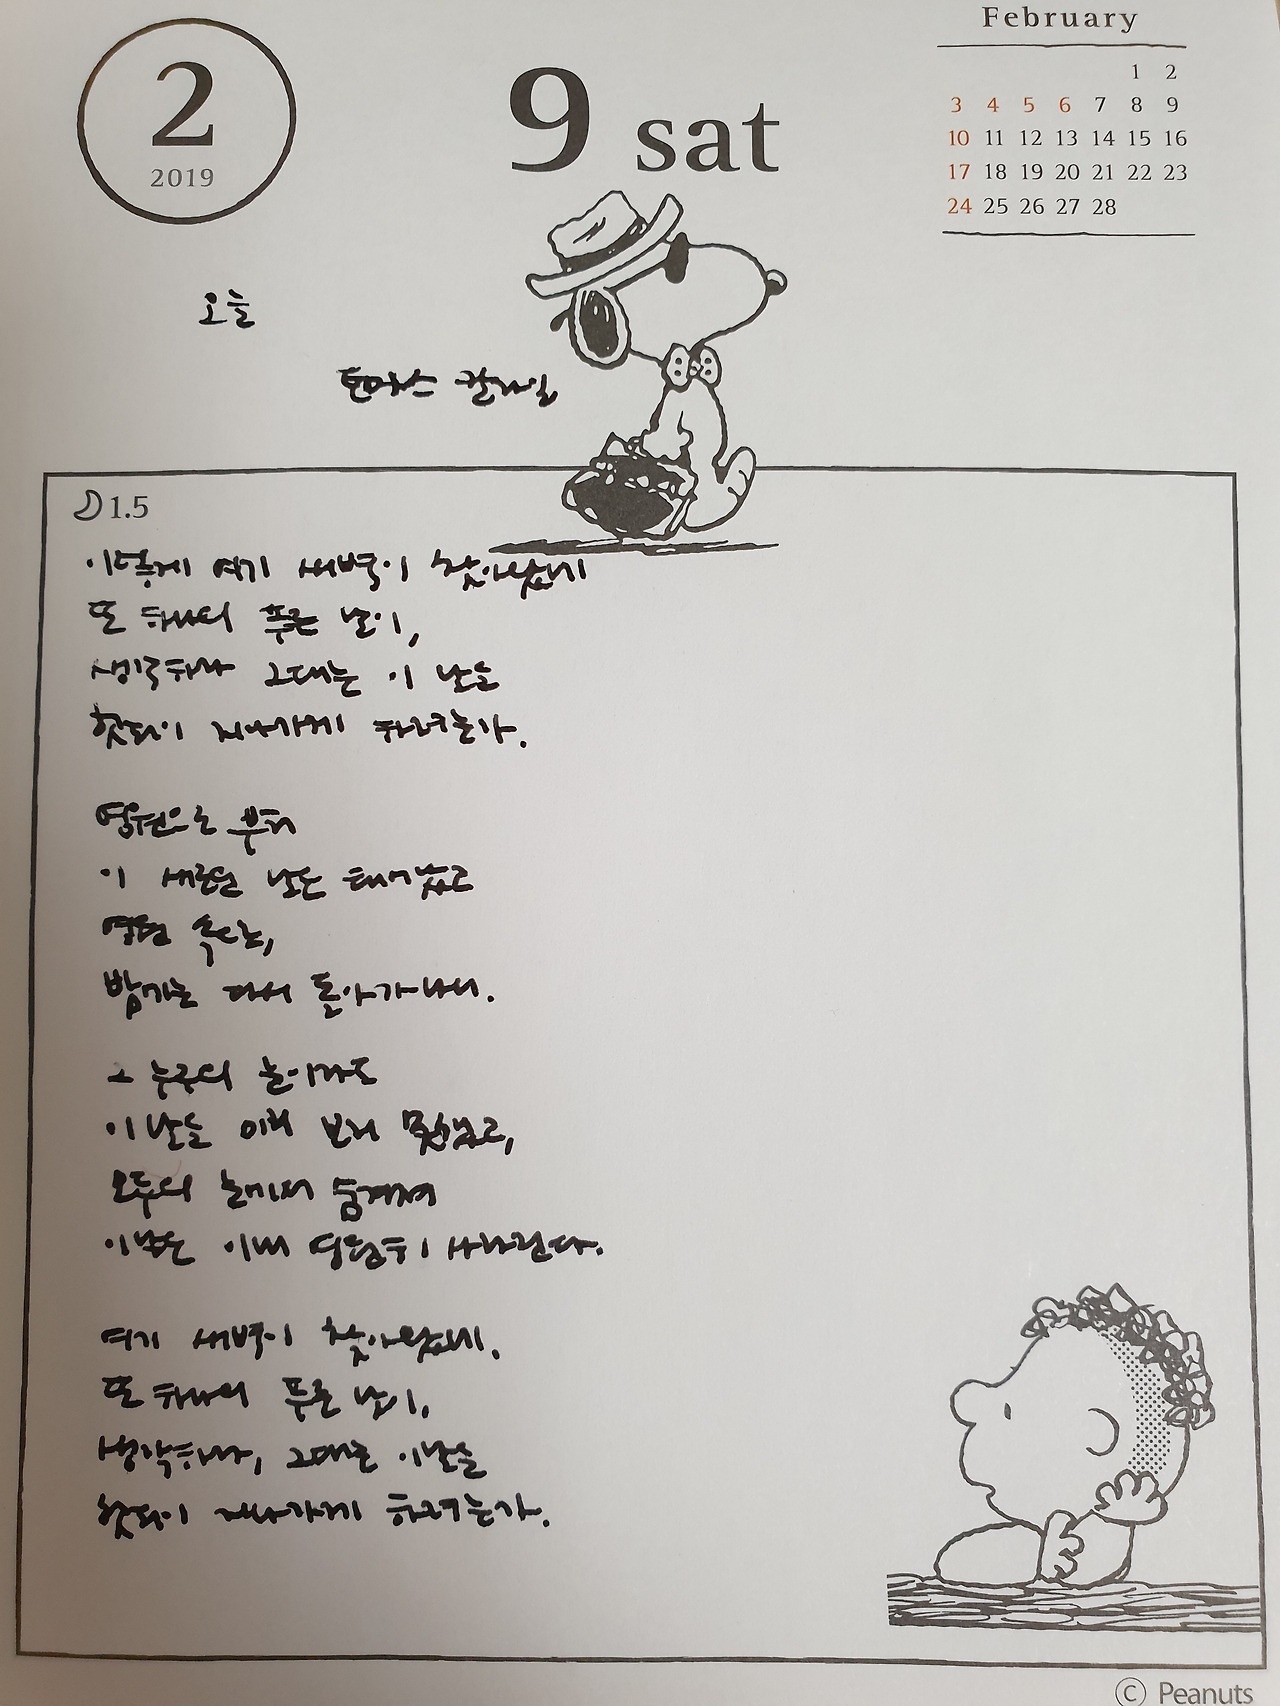 February
2
2019
9 sat
1 2
3 4 5 6 7 8 9
10 11 12 13 14 15 16
17 18 19 20 21 22 23
24 25 26 27 28
오늘
토마스 칼라일
1.5
이렇게 여기 새벽이 찾아왔네
또 하나의 푸른 날이,
생각하라 그대는 이 날을
헛되이 지나가게 하려는가.
영원으로 부터
이 새로운 날은 태어났고
영원 속으로,
밤에는 다시 돌아가나니.
그 누구의 눈이라도
이 날을 미리 보지 못했고,
모두의 눈에서 숨겨져
이날은 이내 영원히 사라진다.
여기 새벽이 찾아왔네.
또 하나의 푸른 날이,
생각하라, 그대는 이날을
헛되이 지나가게 하려는가.
© Peanuts